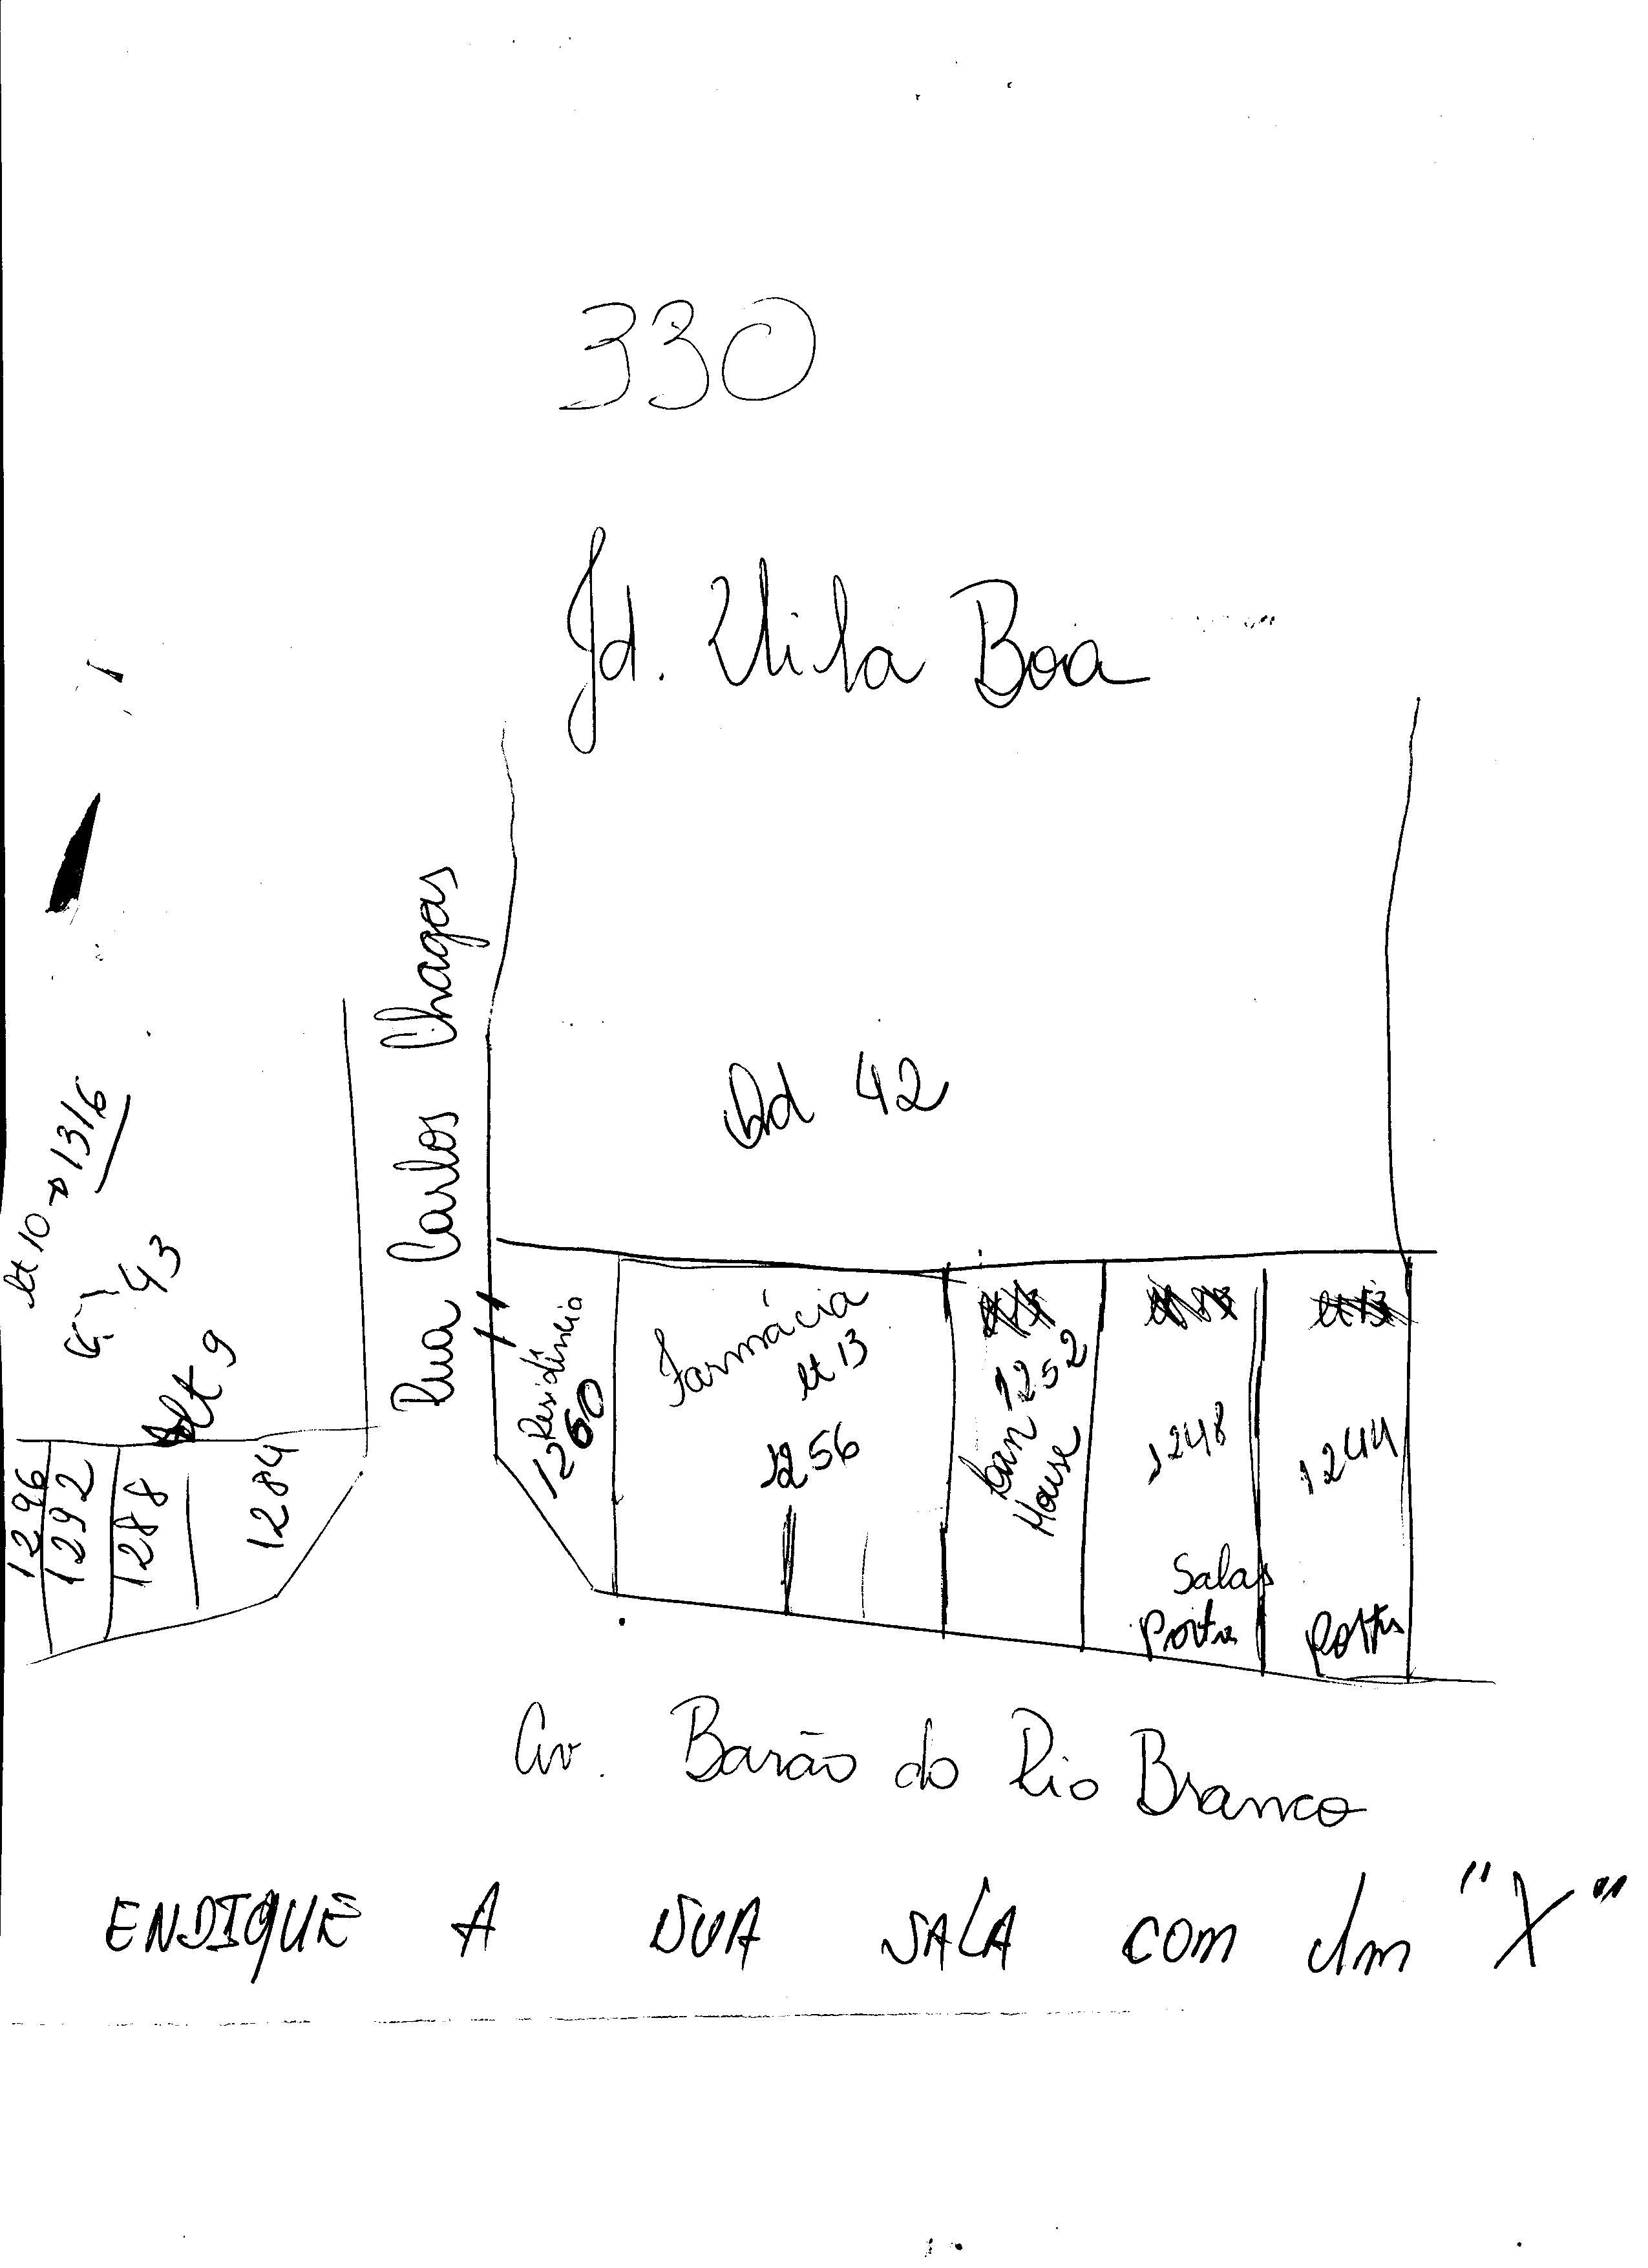 330
Jd. Vila Boa
Rua Carlos Chagas
Qd 42
lt 10 → 1316
43
lt 9
1296
1292
1288
1284
Residência
1260
Farmácia
lt 13
1256
1252
Lan
House
1248
Salas
Porta
1244
Porta
Av. Barão do Rio Branco
ENDIQUE A SUA SALA COM Um "X"